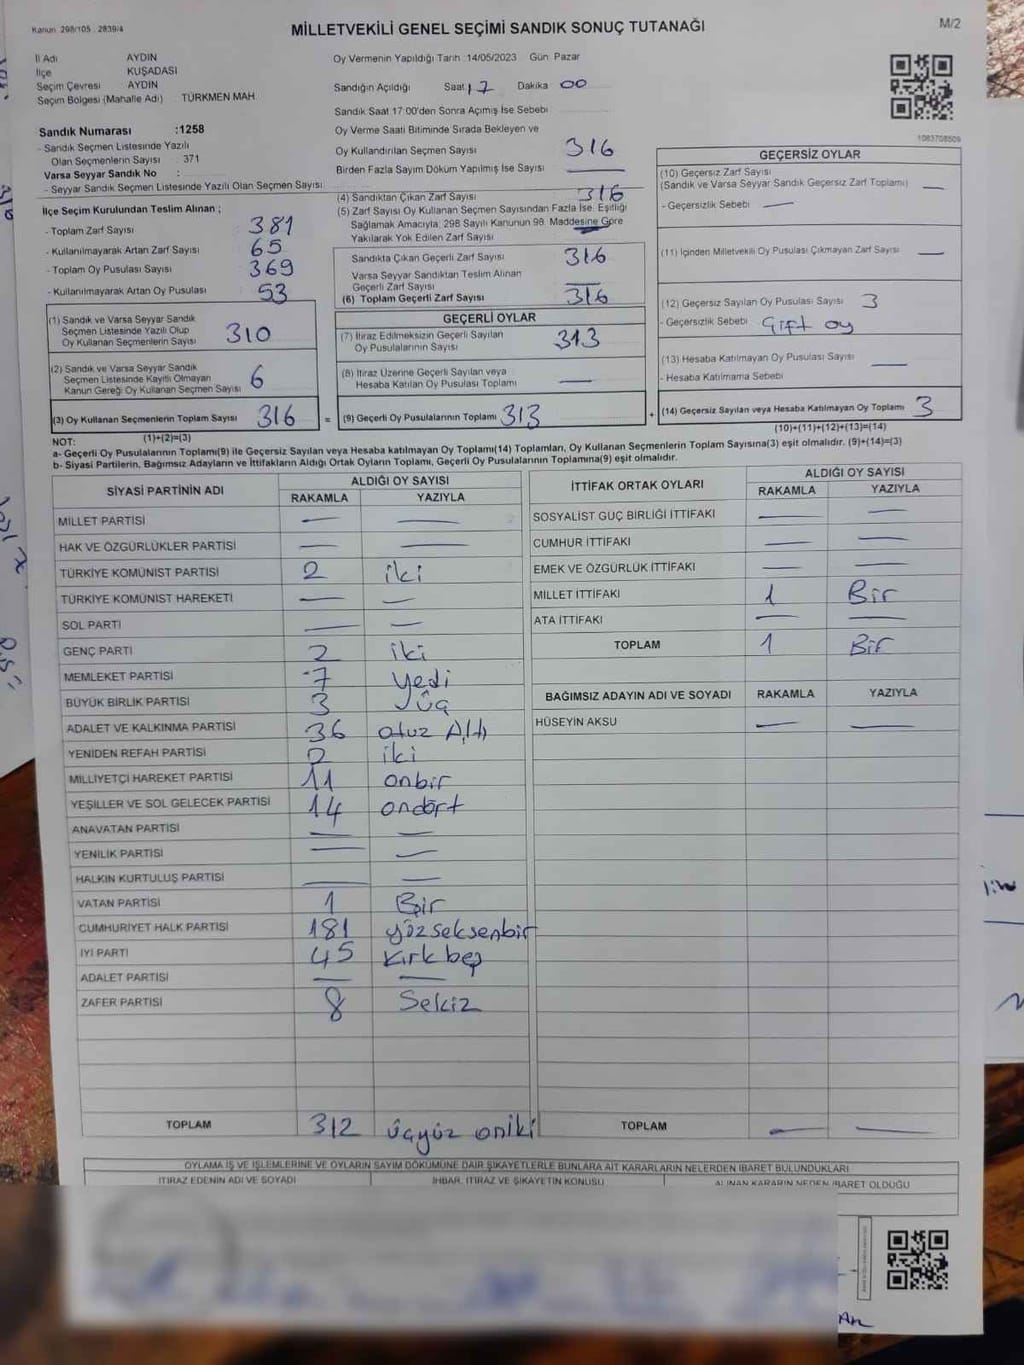 Kanun 298/105 2839/4
MİLLETVEKİLİ GENEL SEÇİMİ SANDIK SONUÇ TUTANAĞI
M/2
İl Adı AYDIN
İlçe KUŞADASI
Seçim Çevresi AYDIN
Seçim Bölgesi (Mahalle Adı) TÜRKMEN MAH.
Oy Vermenin Yapıldığı Tarih :14/05/2023 Gün: Pazar
Sandığın Açıldığı Saat 17 Dakika 00
Sandık Saat 17:00'den Sonra Açımış İse Sebebi
Oy Verme Saati Bitiminde Sırada Bekleyen ve
Oy Kullandırılan Seçmen Sayısı 316
Birden Fazla Sayım Döküm Yapılmış İse Sayısı
1083708509
Sandık Numarası :1258
- Sandık Seçmen Listesinde Yazılı
Olan Seçmenlerin Sayısı : 371
Varsa Seyyar Sandık No :
- Seyyar Sandık Seçmen Listesinde Yazılı Olan Seçmen Sayısı
İlçe Seçim Kurulundan Teslim Alınan ;
- Toplam Zarf Sayısı 381
- Kullanılmayarak Artan Zarf Sayısı 65
- Toplam Oy Pusulası Sayısı 369
- Kullanılmayarak Artan Oy Pusulası 53
(1) Sandık ve Varsa Seyyar Sandık
Seçmen Listesinde Yazılı Olup
Oy Kullanan Seçmenlerin Sayısı 310
(2) Sandık ve Varsa Seyyar Sandık
Seçmen Listesinde Kayıtlı Olmayan
Kanun Gereği Oy Kullanan Seçmen Sayısı 6
(3) Oy Kullanan Seçmenlerin Toplam Sayısı 316 =
(1)+(2)=(3)
(4) Sandıktan Çıkan Zarf Sayısı 316
(5) Zarf Sayısı Oy Kullanan Seçmen Sayısından Fazla İse, Eşitliği
Sağlamak Amacıyla, 298 Sayılı Kanunun 98. Maddesine Göre
Yakılarak Yok Edilen Zarf Sayısı
Sandıkta Çıkan Geçerli Zarf Sayısı 316
Varsa Seyyar Sandıktan Teslim Alınan
Geçerli Zarf Sayısı
(6) Toplam Geçerli Zarf Sayısı 316
GEÇERLİ OYLAR
(7) İtiraz Edilmeksizin Geçerli Sayılan
Oy Pusulalarının Sayısı 313
(8) İtiraz Üzerine Geçerli Sayılan veya
Hesaba Katılan Oy Pusulası Toplamı
(9) Geçerli Oy Pusulalarının Toplamı 313 +
GEÇERSİZ OYLAR
(10) Geçersiz Zarf Sayısı
(Sandık ve Varsa Seyyar Sandık Geçersiz Zarf Toplamı)
- Geçersizlik Sebebi
(11) İçinden Milletvekili Oy Pusulası Çıkmayan Zarf Sayısı
(12) Geçersiz Sayılan Oy Pusulası Sayısı 3
- Geçersizlik Sebebi Çift oy
(13) Hesaba Katılmayan Oy Pusulası Sayısı
- Hesaba Katılmama Sebebi
(14) Geçersiz Sayılan veya Hesaba Katılmayan Oy Toplamı 3
(10)+(11)+(12)+(13)=(14)
NOT:
a- Geçerli Oy Pusulalarının Toplamı(9) ile Geçersiz Sayılan veya Hesaba katılmayan Oy Toplamı(14) Toplamları, Oy Kullanan Seçmenlerin Toplam Sayısına(3) eşit olmalıdır. (9)+(14)=(3)
b- Siyasi Partilerin, Bağımsız Adayların ve İttifakların Aldığı Ortak Oyların Toplamı, Geçerli Oy Pusulalarının Toplamına(9) eşit olmalıdır.
SİYASİ PARTİNİN ADI ALDIĞI OY SAYISI
RAKAMLA YAZIYLA
MİLLET PARTİSİ
HAK VE ÖZGÜRLÜKLER PARTİSİ
TÜRKİYE KOMÜNİST PARTİSİ 2 iki
TÜRKİYE KOMÜNİST HAREKETİ
SOL PARTİ
GENÇ PARTİ 2 iki
MEMLEKET PARTİSİ 7 yedi
BÜYÜK BİRLİK PARTİSİ 3 üç
ADALET VE KALKINMA PARTİSİ 36 otuz Altı
YENİDEN REFAH PARTİSİ 2 iki
MİLLİYETÇİ HAREKET PARTİSİ 11 onbir
YEŞİLLER VE SOL GELECEK PARTİSİ 14 ondört
ANAVATAN PARTİSİ
YENİLİK PARTİSİ
HALKIN KURTULUŞ PARTİSİ
VATAN PARTİSİ 1 Bir
CUMHURİYET HALK PARTİSİ 181 yüzseksenbir
İYİ PARTİ 45 Kırkbeş
ADALET PARTİSİ
ZAFER PARTİSİ 8 Sekiz
TOPLAM 312 üçyüz oniki
İTTİFAK ORTAK OYLARI ALDIĞI OY SAYISI
RAKAMLA YAZIYLA
SOSYALİST GÜÇ BİRLİĞİ İTTİFAKI
CUMHUR İTTİFAKI
EMEK VE ÖZGÜRLÜK İTTİFAKI
MİLLET İTTİFAKI 1 Bir
ATA İTTİFAKI
TOPLAM 1 Bir
BAĞIMSIZ ADAYIN ADI VE SOYADI RAKAMLA YAZIYLA
HÜSEYİN AKSU
TOPLAM
OYLAMA İŞ VE İŞLEMLERİNE VE OYLARIN SAYIM DÖKÜMÜNE DAİR ŞİKAYETLERLE BUNLARA AİT KARARLARIN NELERDEN İBARET BULUNDUKLARI
İTİRAZ EDENİN ADI VE SOYADI İHBAR, İTİRAZ VE ŞİKAYETİN KONUSU ALINAN KARARIN NEDEN İBARET OLDUĞU